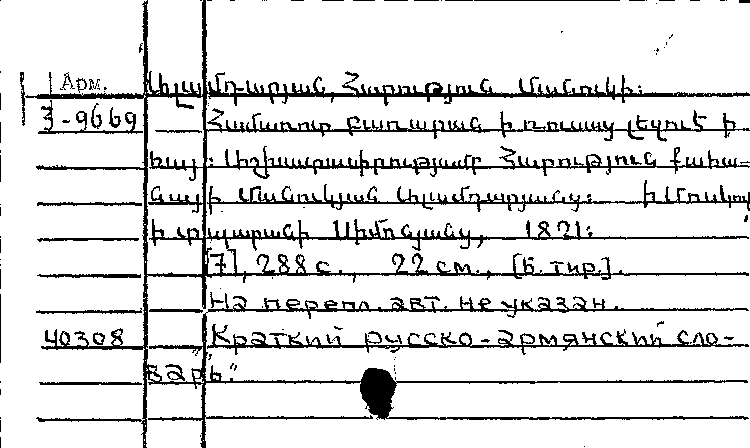 Арм. Ալամդարյան, Հարություն Մանուկի։
3-9669 Համառոտ բառարան ի ռուսաց լեզուէ ի
հայ։ Աշխատասիրությամբ Հարություն քահա-
նայի Մանուկյան Ալամդարյանց։ ի Մոսկով
ի տպարանի Սիմոնյանց, 1821։
[7], 288 с., 22 см., [б. тир.].
На перепл. авт. не указан.
40308 "Краткий русско-армянский сло-
варь."